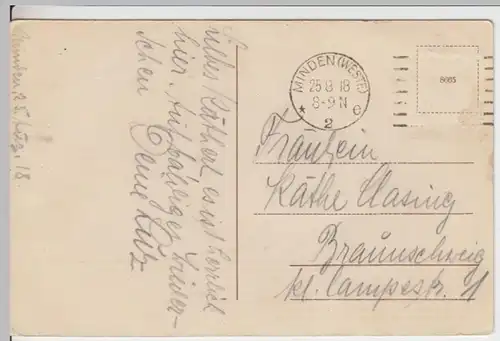 Minden, 25. Aug. 18
Liebes Käthe! es ist herrlich
hier.
schen
Deine
MINDEN (WESTF)
25 8 18
8-9 N
* 2 e
8665
Fräulein
Käthe Clasing
Braunschweig
kl. Campestr. 1